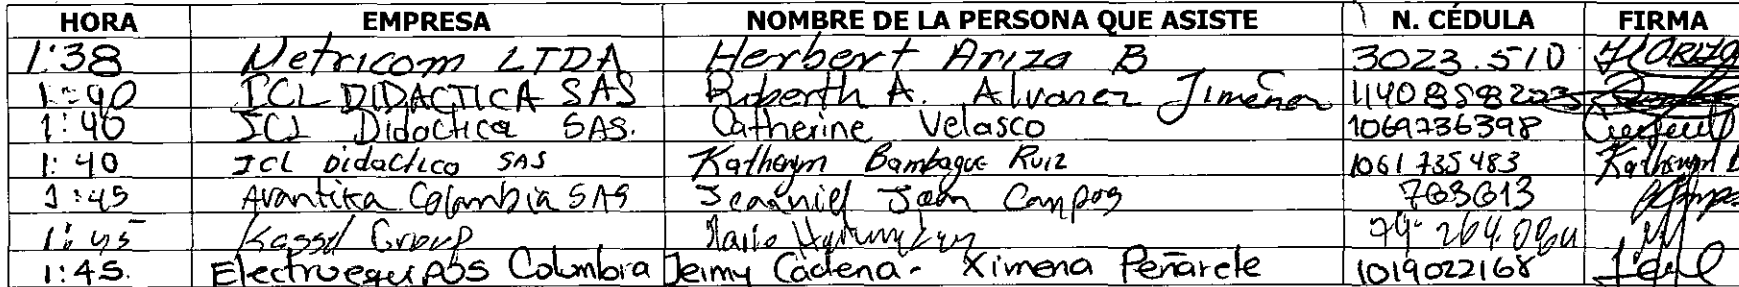 HORA EMPRESA NOMBRE DE LA PERSONA QUE ASISTE N. CÉDULA FIRMA
1:38 Netricom LTDA Herbert Ariza B 3023.510 HARIZA
1:40 ICL DIDACTICA SAS Roberth A. Alvarez Jimenez
1:40 ICL Didactica SAS. Catherine Velasco 1069736398
1:40 Icl Didactica SAS Katheryn Bambague Ruiz 1061735483 Katheryn B
1:45 Avantika Colombia SAS Jean Campos 763613
1:45 Kassel Group
1:45. Electroequipos Colombia Jeimy Cadena - Ximena Peñarete 1019022168